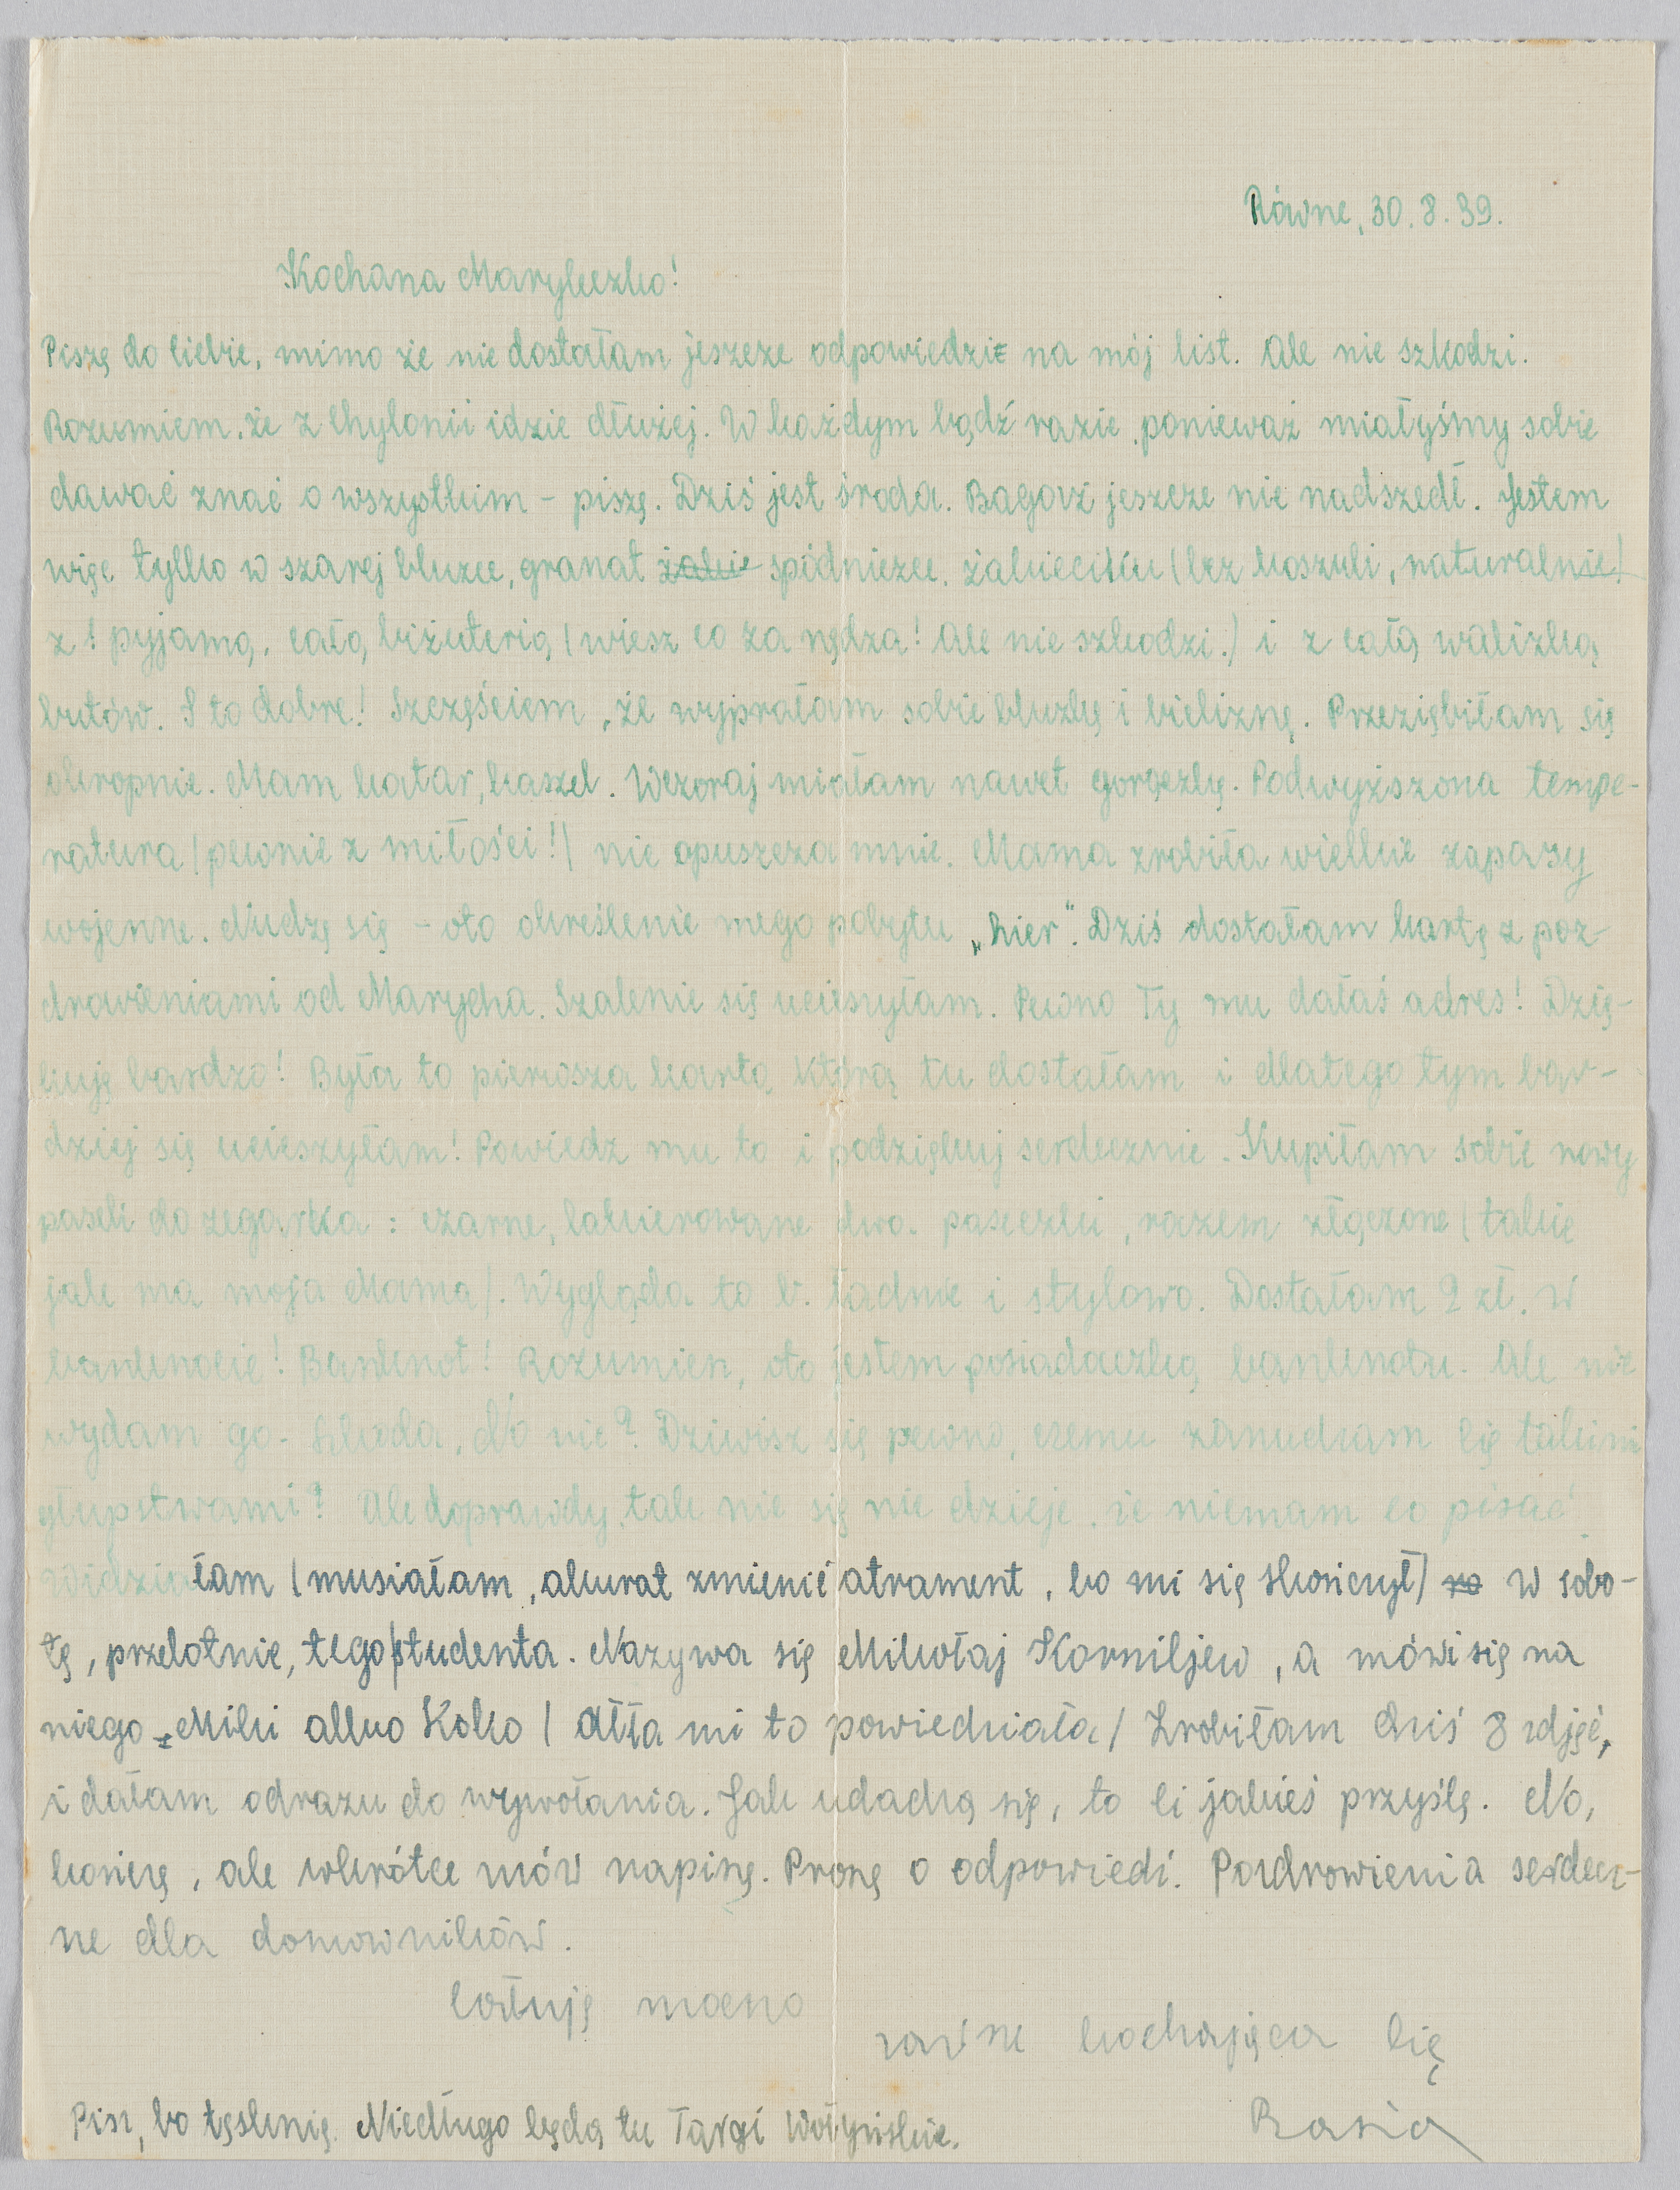 Równe, 30.8.39.
Kochana Maryleczko!
Piszę do Ciebie, mimo że nie dostałam jeszcze odpowiedzi na mój list. Ale nie szkodzi.
Rozumiem, że z Chylonii idzie dłużej. W każdym bądź razie, ponieważ miałyśmy sobie
dawać znać o wszystkim – piszę. Dziś jest środa. Bagaż jeszcze nie nadszedł. Jestem
więc tylko w szarej bluzce, granat żakie spódniczce, żakieciku (bez koszuli, naturalnie)
z! pyjamą, całą biżuterią (wiesz co za nędza! Ale nie szkodzi.) i z całą walizką
butów. I to dobre! Szczęściem, że wyprałam sobie bluzkę i bieliznę. Przeziębiłam się
okropnie. Mam katar, kaszel. Wczoraj miałam nawet gorączkę. Podwyższona tempe-
ratura (pewnie z miłości!) nie opuszcza mnie. Mama zrobiła wielkie zapasy
wojenne. Nudzę się – oto określenie mego pobytu „hier". Dziś dostałam kartę z poz-
drowieniami od Marycha. Szalenie się ucieszyłam. Pewno Ty mu dałaś adres! Dzię-
kuję bardzo! Była to pierwsza karta, którą tu dostałam i dlatego tym bar-
dziej się ucieszyłam! Powiedz mu to i podziękuj serdecznie. Kupiłam sobie nowy
pasek do zegarka: czarne, lakierowane dwa paseczki, razem złączone (takie
jak ma moja Mama). Wygląda to b. ładnie i stylowo. Dostałam 2 zł. w
banknocie! Banknot! Rozumiesz, oto jestem posiadaczką banknotu. Ale nie
wydam go. Szkoda, No nie? Dziwisz się pewno, czemu zanudzam Cię takimi
głupstwami? Ale doprawdy, tak nic się nie dzieje, że niemam co pisać!
Widziałam (musiałam, akurat zmienić atrament, bo mi się skończył) w sobo-
tę, przelotnie, tego studenta. Nazywa się Mikołaj Korniljew, a mówi się na
niego – Miki albo Koko (Ałła mi to powiedziała) Zrobiłam dziś 8 zdjęć,
i dałam odrazu do wywołania. Jak udadzą się, to Ci jakieś przyślę. No,
kończę, ale wkrótce znów napiszę. Proszę o odpowiedź. Pozdrowienia serdecz-
ne dla domowników.
Całuję mocno
zawsze kochająca Cię
Basia
Pisz, bo tęsknię. Niedługo będą tu Targi Wołyńskie.